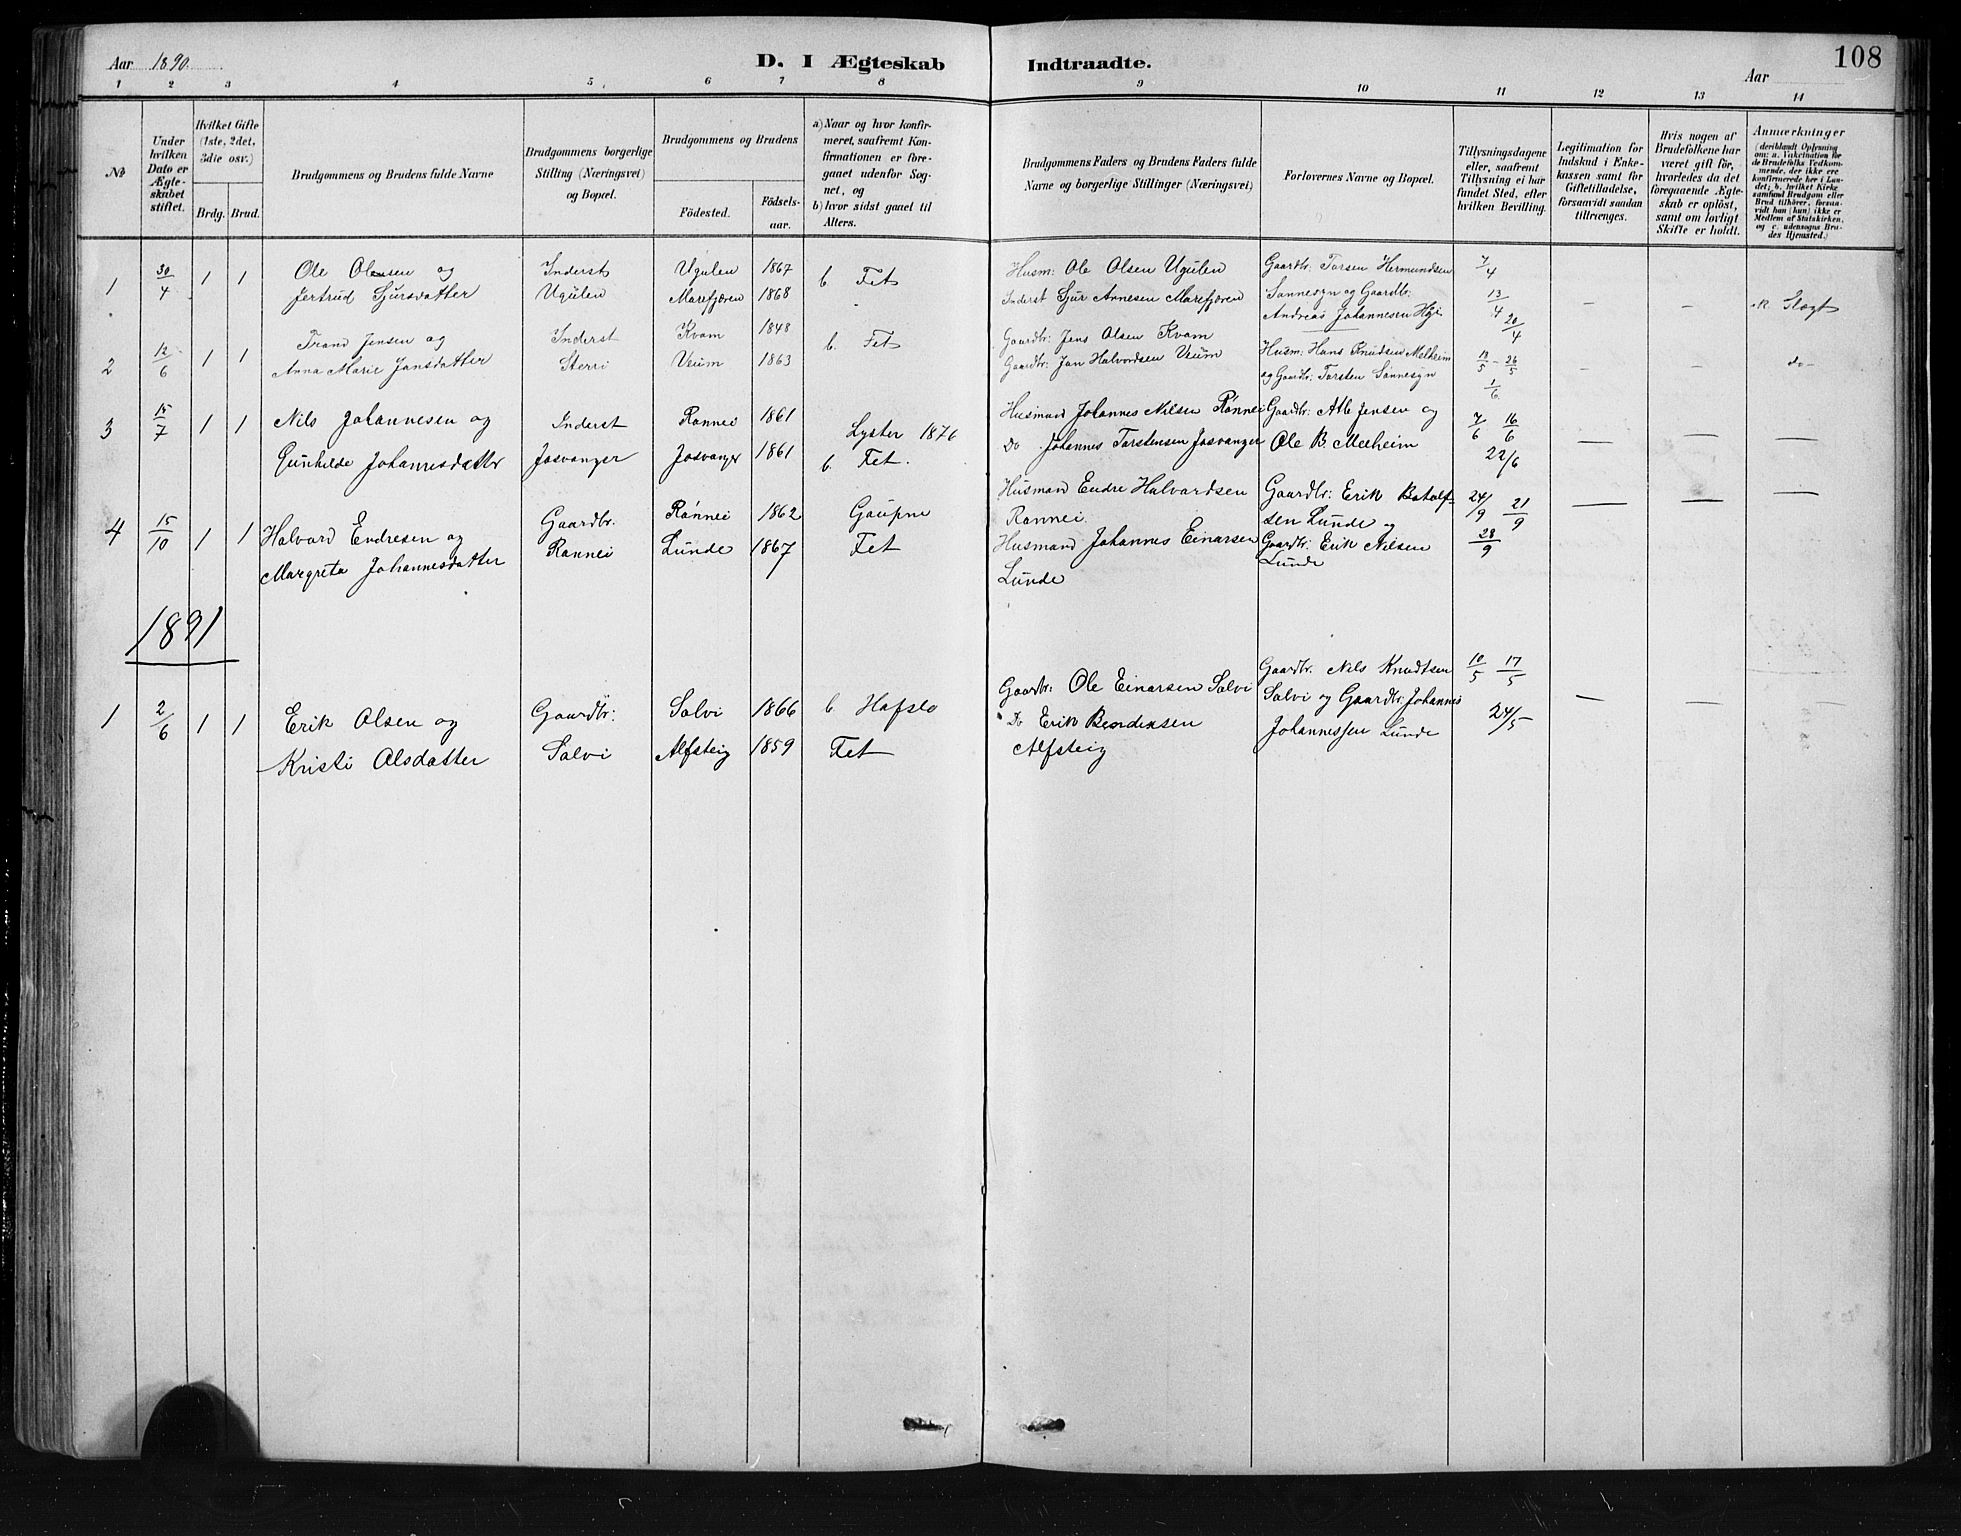 Aar 1890.
D. I Ægteskab Indtraadte.
Aar
108
1 2 3 4 5 6 7 8 9 10 11 12 13 14
No
Under hvilken Dato er Ægteskabet stiftet.
Hvilket Gifte (1ste, 2det, 3die osv.)
Brdg. Brud.
Brudgommens og Brudens fulde Navne
Brudgommens borgerlige Stilling (Næringsvei) og Bopæl.
Brudgommens og Brudens
Födested.
Födselsaar.
a) Naar og hvor konfirmeret, saafremt Konfirmationen er foregaaet udenfor Sognet, og
b) hvor sidst gaaet til Alters.
Brudgommens Faders og Brudens Faders fulde Navne og borgerlige Stillinger (Næringsvei)
Forlovernes Navne og Bopæl.
Tillysningsdagene eller, saafremt Tillysning ei har fundet Sted, efter hvilken Bevilling.
Legitimation for Indskud i Enkekassen samt for Giftetilladelse, forsaavidt saadan tiltrænges.
Hvis nogen af Brudefolkene har været gift för, hvorledes da det foregaaende Ægteskab er oplöst, samt om lovligt Skifte er holdt.
Anmærkninger (deriblandt Oplysning om: a. Vakcination for de Brudefolks Vedkommende, der ikke ere konfirmerede her i Landet; b. hvilket Kirkesamfund Brudgom eller Brud tilhörer, forsaavidt han (hun) ikke er Medlem af Statskirken, og c. udensogns Brudes Hjemsted.)
1 30/4 1 1 Ole Olensen og Inderst Ugulen 1867 b Fet Husm: Ole Olsen Ugulen Gaardbr: Torsen Hermundsen 7/4
Jertrud Sjursdatter Ugulen Marefjæren 1868 Inderst Sjur Arnesen Marefjæren Sønnesyn og Gaardbr: 13/4 — — Slægt
Andreas Johannesen 20/4
2 12/6 1 1 Trond Jensen og Inderst Kvam 1848 b. Fet Gaardbr: Jens Olsen Kvam Husm: Hans Knudsen Melheim
Anna Marie Jansdatter Sterri Veum 1863 Gaardbr: Jan Halvordsen Veum og Gaardbr: Torsten Sønnesyn 18/5 - 26/5 1/6 — — do-
3 15/7 1 1 Nils Johannesen og Inderst Rønnei 1861 Lyster 1876 Husmand Johannes Nilsen Rønnei Gaardbr: Atle Jensen og 7/6 16/6
Gunhilde Johannesdatter Josvanger Josvanger 1861 b. Fet. Do Johannes Torstensen Josvanger Ole B. Melheim 22/6 — — —
4 15/10 1 1 Halvard Endresen og Gaardbr: Rønnei 1862 Gaupne Husmand Endre Halvardsen Rønnei Gaardbr: Erik Botolfsen Lunde og 24/9 21/9 — — —
Margreta Johannesdatter Rønnei Lunde 1867 Fet Husmand Johannes Einarsen Lunde Gaardbr: Erik Nilsen Lunde 28/9
1891
1 2/6 1 1 Erik Olsen og Gaardbr: Solvi 1866 b. Hafslo Gaardbr: Ole Einarsen Solvi Gaardbr. Nils Knudtsen 10/5 17/5
Kristi Olsdatter Solvi Alfsteig 1859 Fet Do Erik Bendiksen Alfsteig Solvi og Gaardbr: Johannes Johannessen Lunde 24/5 — — —